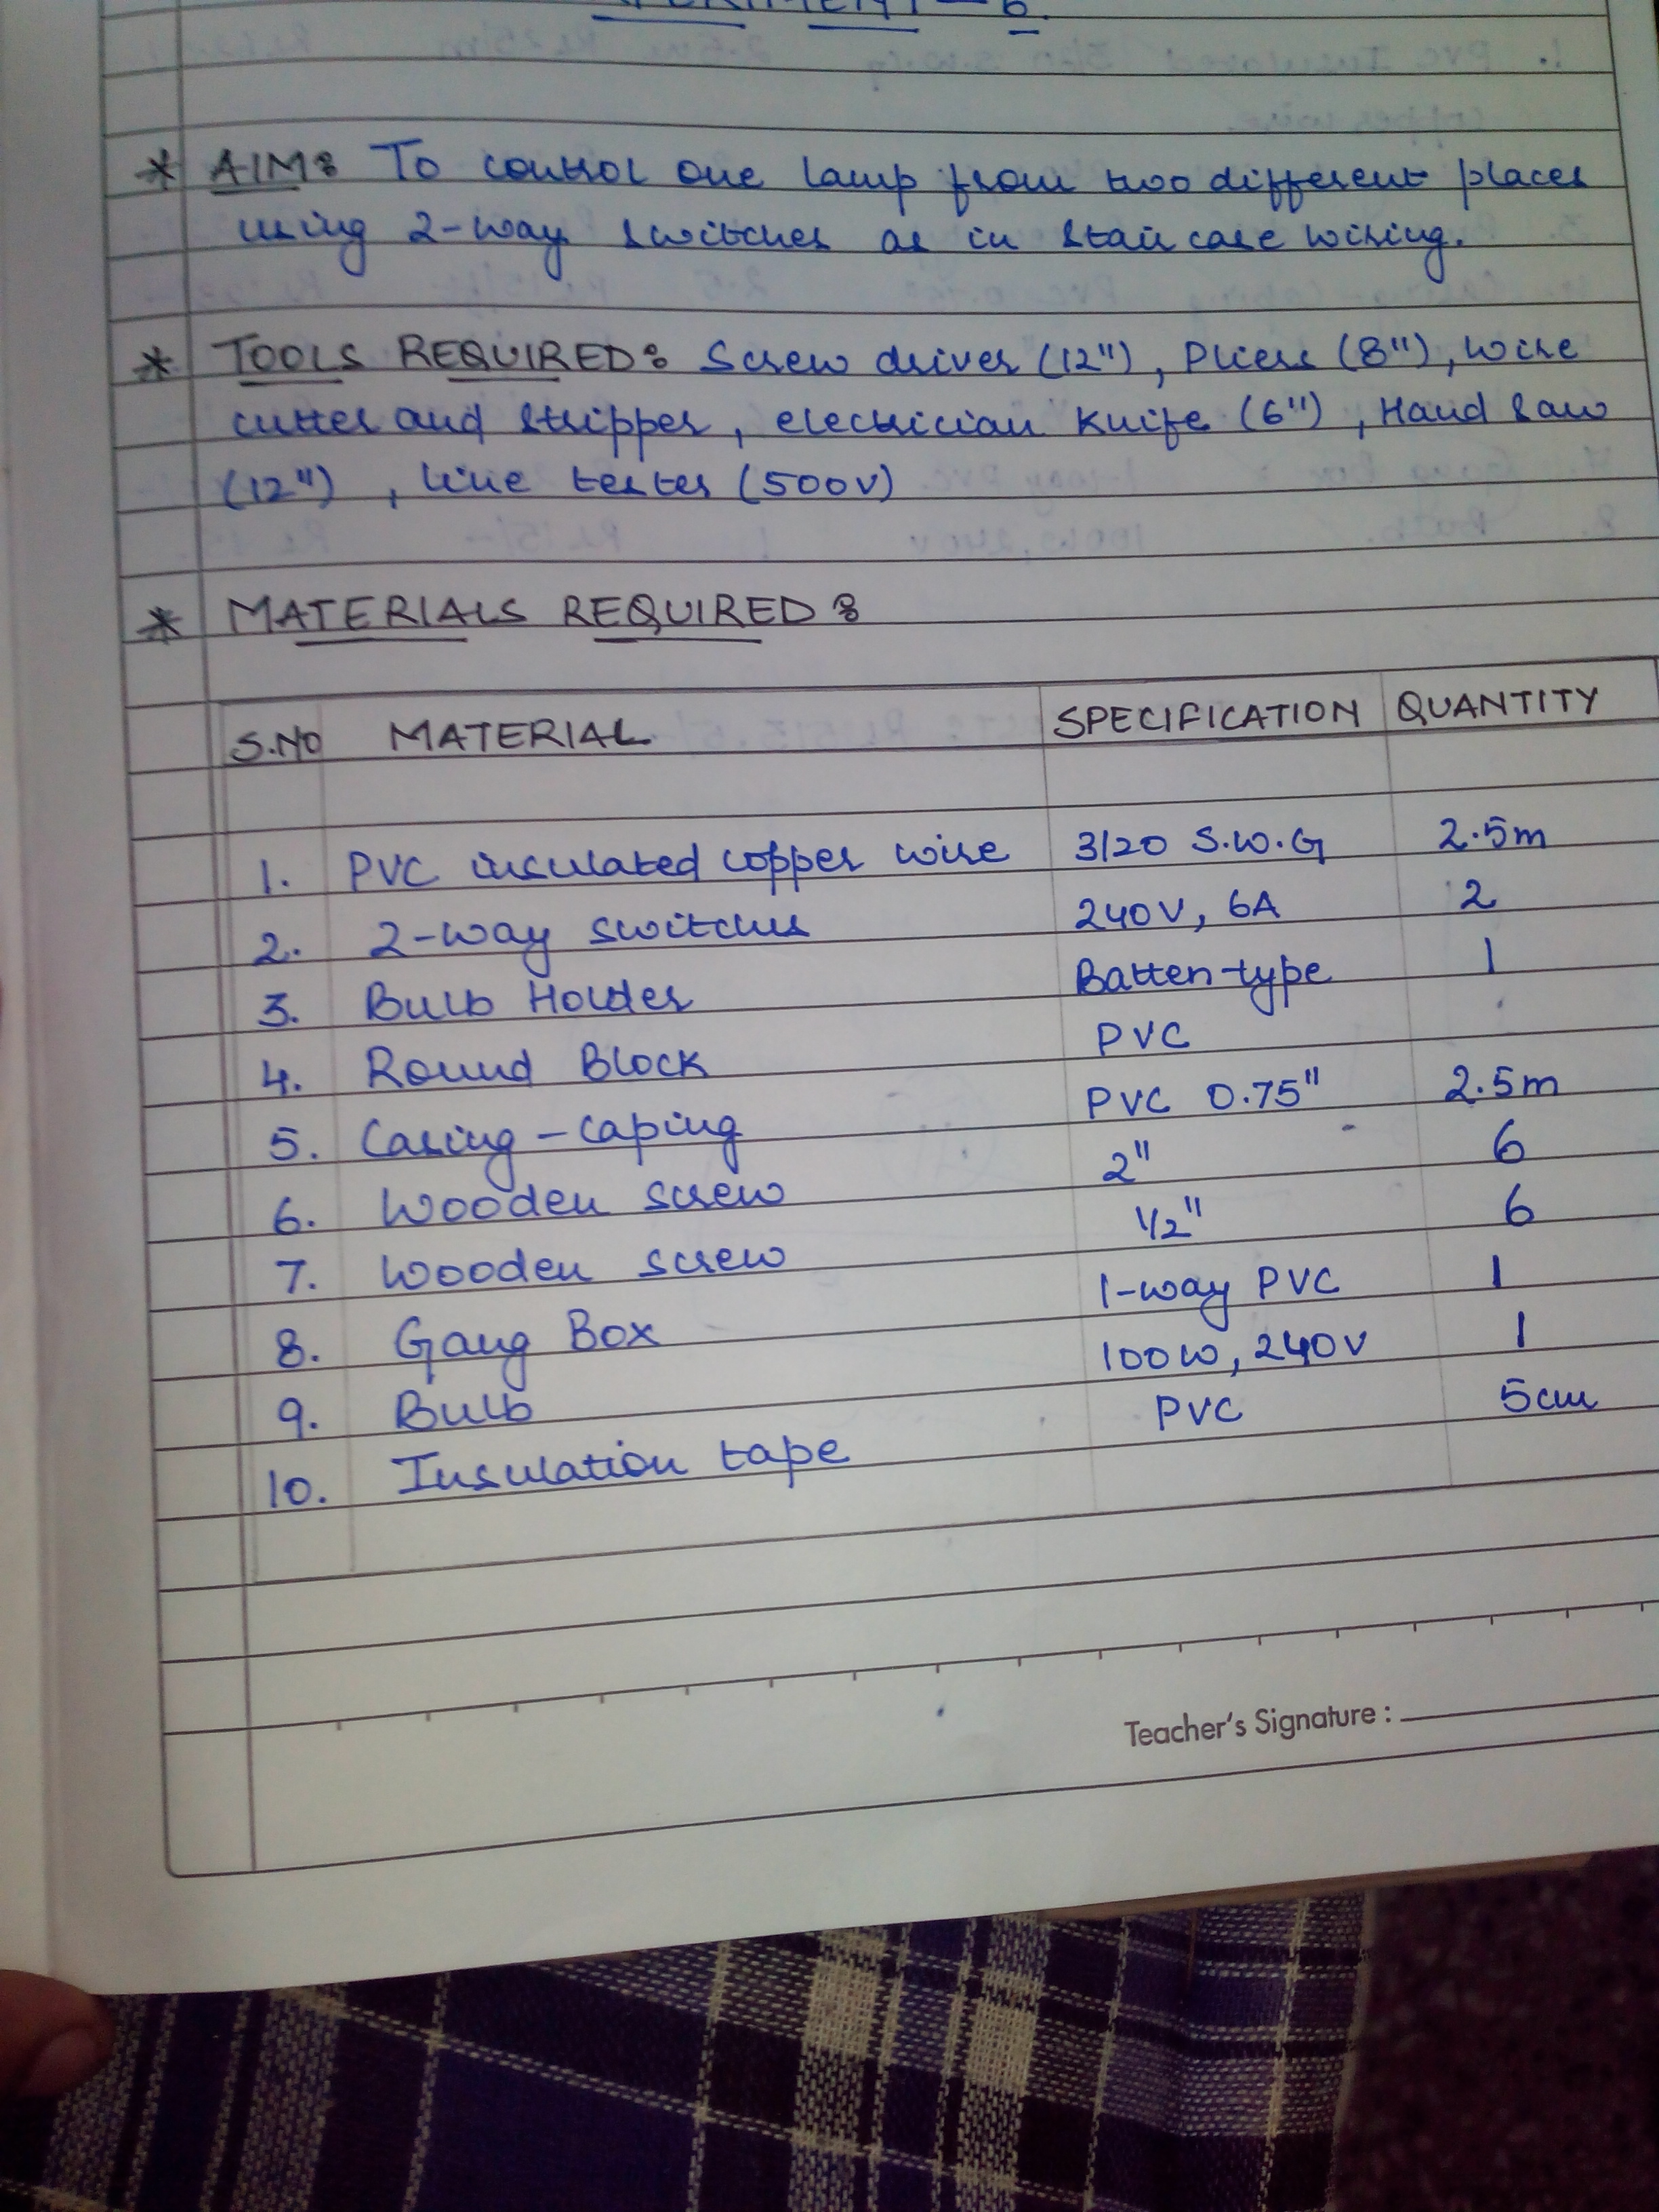 * AIM: To control one lamp from two different places
using 2-way switches as in stair case wiring.
* TOOLS REQUIRED: Screw driver (12"), Pliers (8"), wire
cutter and stripper, electrician knife (6"), Hand saw
(12"), line tester (500V)
* MATERIALS REQUIRED:
S.NO MATERIAL SPECIFICATION QUANTITY
1. PVC insulated copper wire 3/20 S.W.G 2.5m
2. 2-way switches 240V, 6A 2
3. Bulb Holder Batten-type 1
4. Round Block PVC
5. Casing-caping PVC 0.75" 2.5m
6. Wooden screw 2" 6
7. Wooden screw 1/2" 6
8. Gang Box 1-way PVC 1
9. Bulb 100W, 240V 1
10. Insulation tape PVC 5cm
Teacher's Signature :